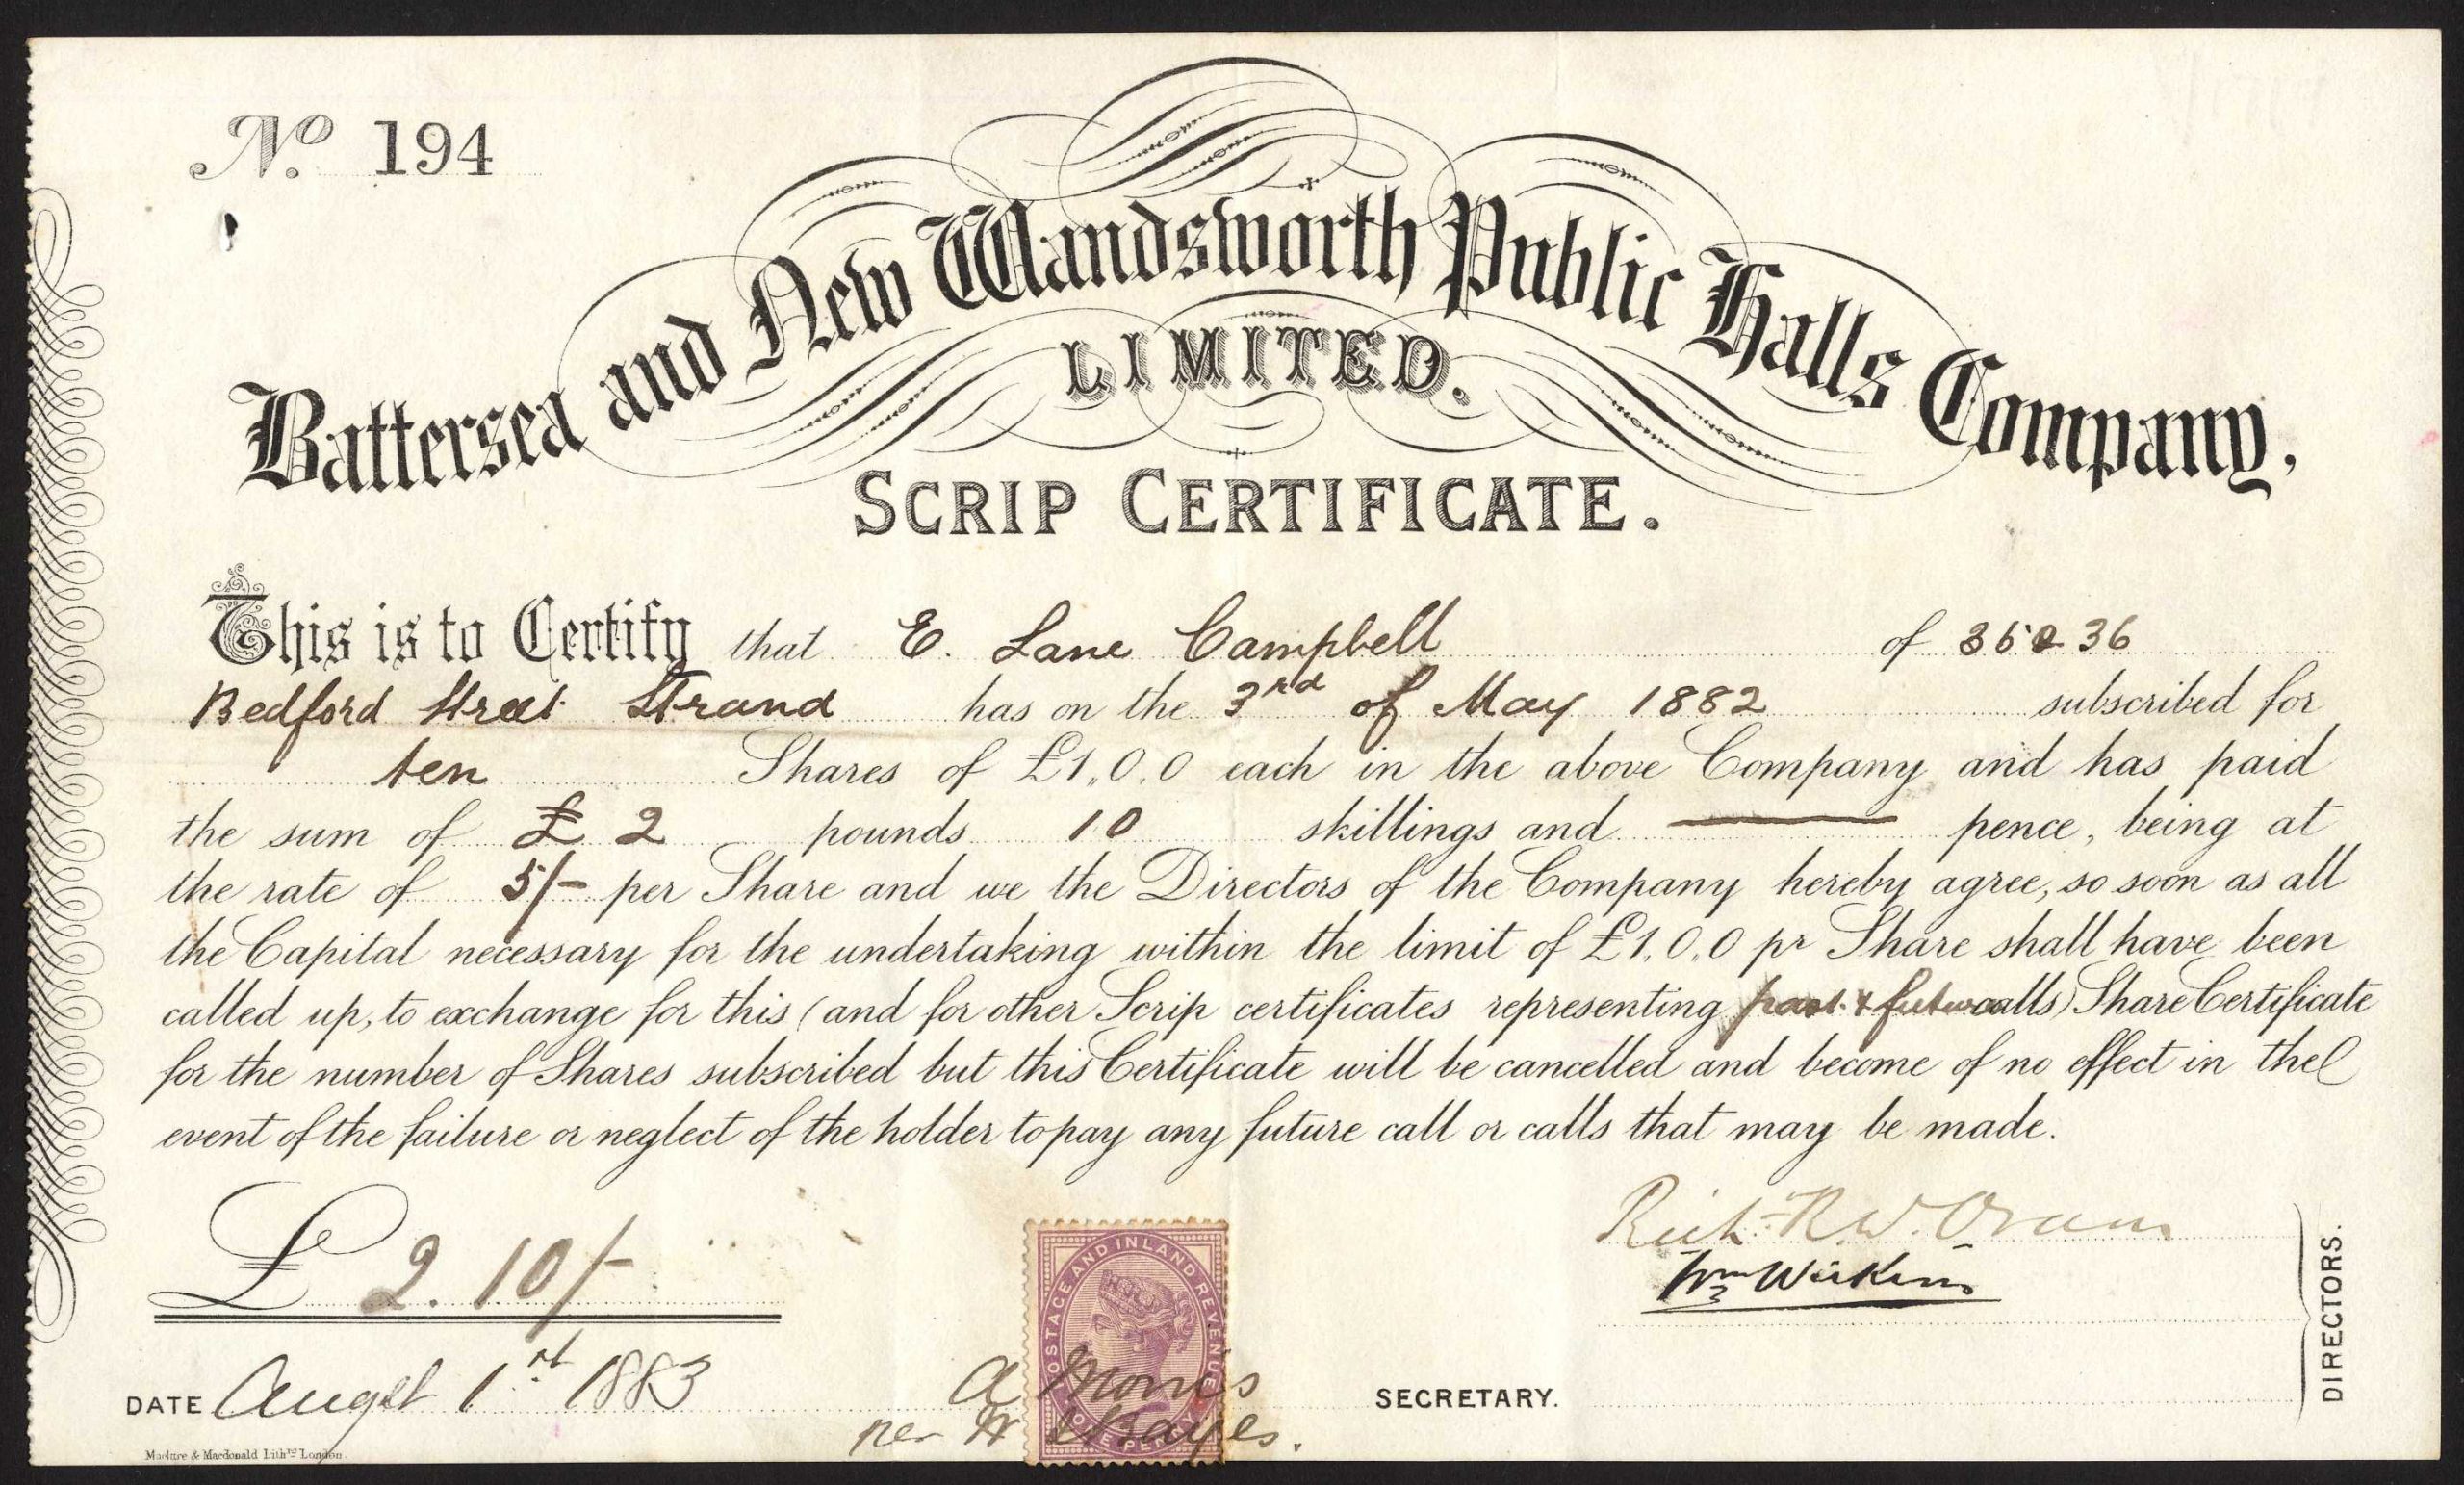 No. 194
Battersea and New Wandsworth Public Halls Company,
LIMITED.
SCRIP CERTIFICATE.
This is to Certify that E. Lane Campbell of 35 & 36
Bedford Street Strand has on the 3rd of May 1882 subscribed for
ten Shares of £1,,0,,0 each in the above Company and has paid
the sum of £ 2 pounds 10 shillings and — pence, being at
the rate of 5/- per Share and we the Directors of the Company hereby agree, so soon as all
the Capital necessary for the undertaking within the limit of £1,,0,,0 pr Share shall have been
called up, to exchange for this (and for other Scrip certificates representing past & future calls) Share Certificate
for the number of Shares subscribed but this Certificate will be cancelled and become of no effect in the
event of the failure or neglect of the holder to pay any future call or calls that may be made.
£ 2. 10/-
POSTAGE AND INLAND REVENUE
ONE PENNY
Rich. R. W. Oram
Wm Wilkins
DIRECTORS.
DATE Augst 1st 1883
A Morris
SECRETARY.
per W Bayes.
Maclure & Macdonald Liths London.